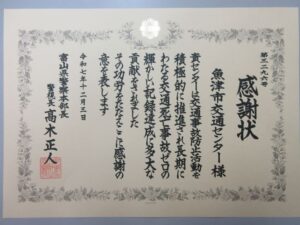 第三二九六号
感謝状
魚津市交通センター様
貴センターは交通事故防止活動を
積極的に推進され長期に
わたる交通死亡事故ゼロの
輝かしい記録達成に多大な
貢献をされました
その功労をたたえここに感謝の
意を表します
令和七年十二月三日
富山県警察本部長
警視長 高木正人